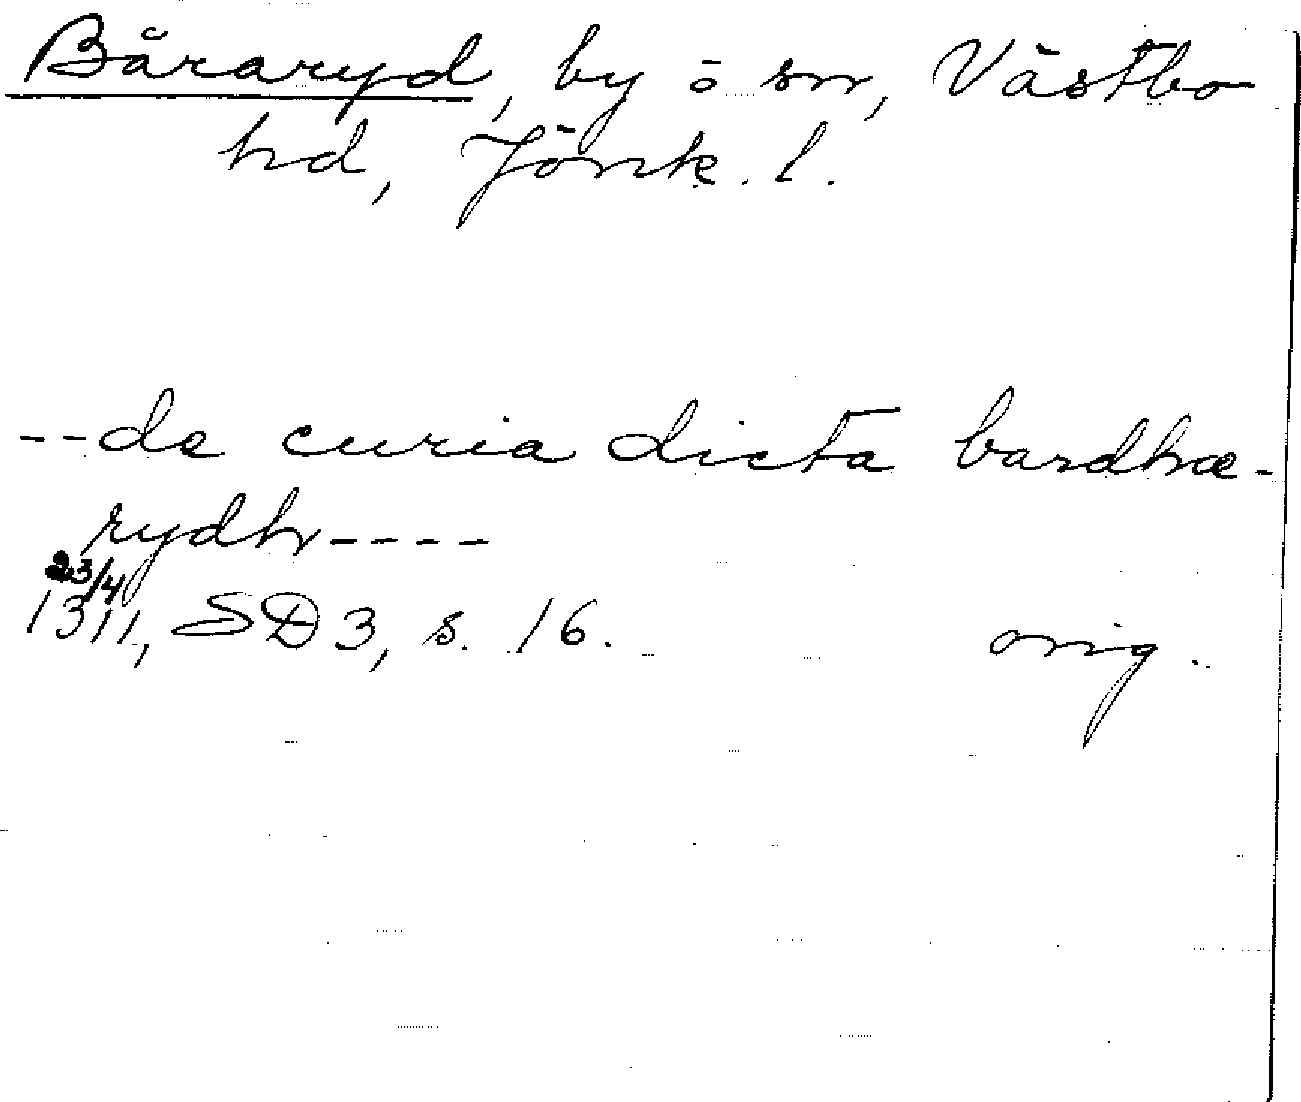 Båraryd, by o sn, Västbo
hd, Jönk. l.
--de curia dicta bardhæ-
rydh----
23/4
1311, SD 3, s. 16. orig.